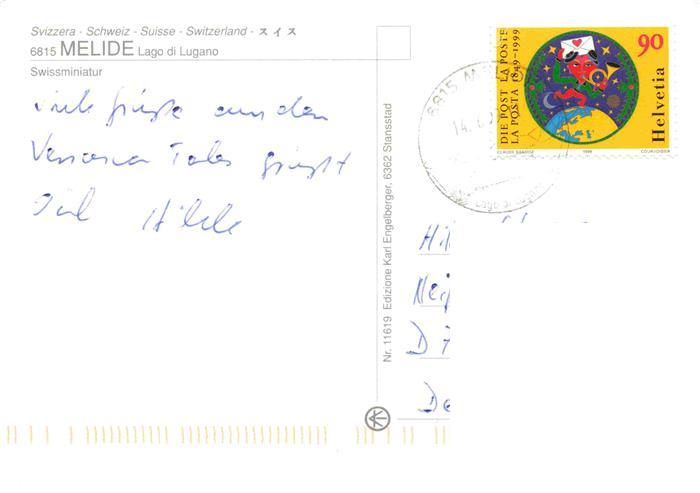 Svizzera - Schweiz - Suisse - Switzerland - スイス
6815 MELIDE Lago di Lugano
Swissminiatur
Viele Grüße aus den
grüßt
Hilde
Nr. 11619 Edizione Karl Engelberger, 6362 Stansstad
DIE POST LA POSTE
LA POSTA 1849-1999
90
Helvetia
1999
COURVOISIER
6815 M
14.6.
Lago di Lugano
Hi
Ne
D 7
De